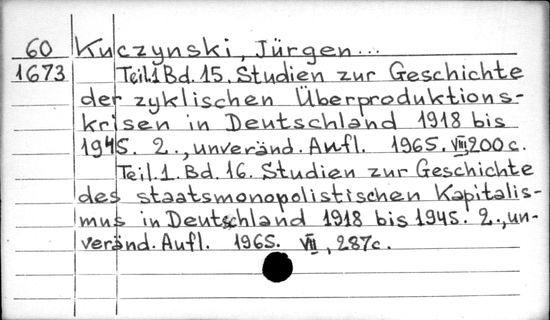 60 Kuczynski, Jürgen...
1673 Teil.1 Bd. 15. Studien zur Geschichte
der zyklischen Überproduktions-
krisen in Deutschland 1918 bis
1945. 2., unveränd. Aufl. 1965. VIII, 200 c.
Teil. 1. Bd. 16. Studien zur Geschichte
des staatsmonopolistischen Kapitalis-
mus in Deutschland 1918 bis 1945. 2., un-
veränd. Aufl. 1965. VIII, 287c.